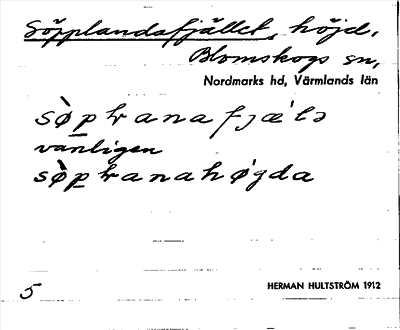 Söpplandsfjället, höjd,
Blomskogs sn,
Nordmarks hd, Värmlands län
sø̀płanafjæ'lə
vanligen
sø̀płanahø'gda
5
HERMAN HULTSTRÖM 1912